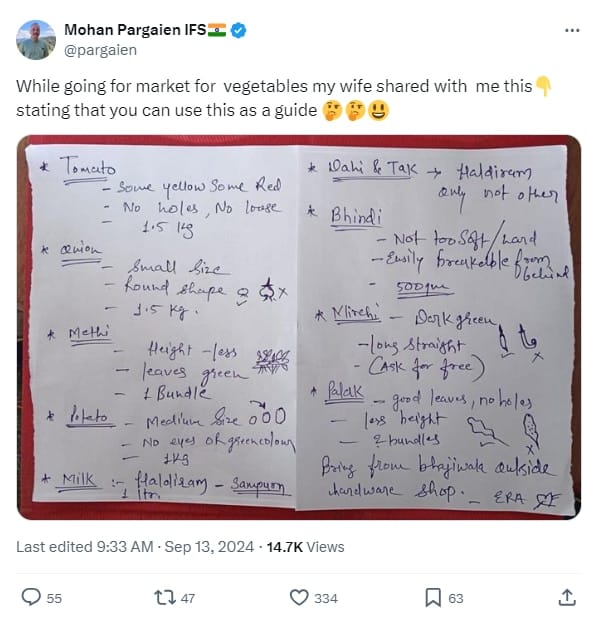 Mohan Pargaien IFS🇮🇳
@pargaien
While going for market for vegetables my wife shared with me this👇
stating that you can use this as a guide 🤔🤔😃
* Tomato
- Some yellow Some Red
- No holes, No loose
- 1.5 kg
* Onion
- Small Size
- Round shape
- 1.5 kg.
* Methi
- Height - less
- leaves green
- 1 Bundle
* Potato - Medium Size
- No eyes or green colour
- 1 kg
* Milk :- Haldiram - Sampurn
1 ltr.
* Dahi & Tak → Haldiram
only not other
* Bhindi
- Not too Soft/hard
- Easily breakable from
behind
- 500gm
* Mirchi - Dark green
- long straight
- (Ask for free)
* Palak - good leaves, no holes
- less height
- 2 bundles
Bring from bhajiwala outside
hardware shop. - ERA
Last edited 9:33 AM · Sep 13, 2024 · 14.7K Views
55 47 334 63